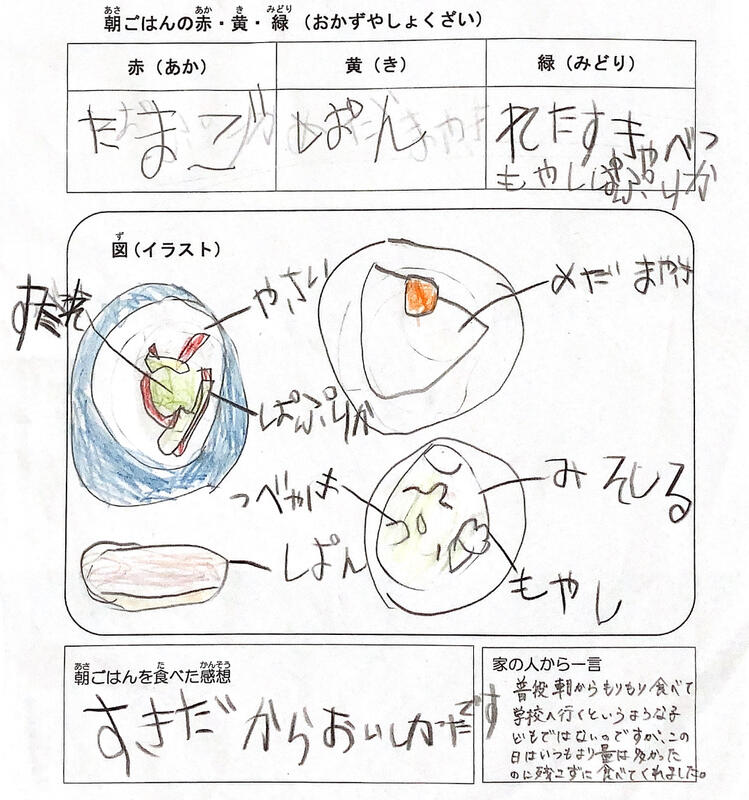 朝ごはんの赤・黄・緑（おかずやしょくざい）
赤（あか） 黄（き） 緑（みどり）
たまご ぱん れたすきゃべつ
もやしぱぷりか
図（イラスト）
やさい
めだまやき
ぱぷりか
みそしる
ぱん
もやし
朝ごはんを食べた感想
すきだからおいしかたです
家の人から一言
普段朝からもりもり食べて
学校へ行くというような子
どもではないのですが、この
日はいつもより量は多かった
のに残こずに食べてくれました。